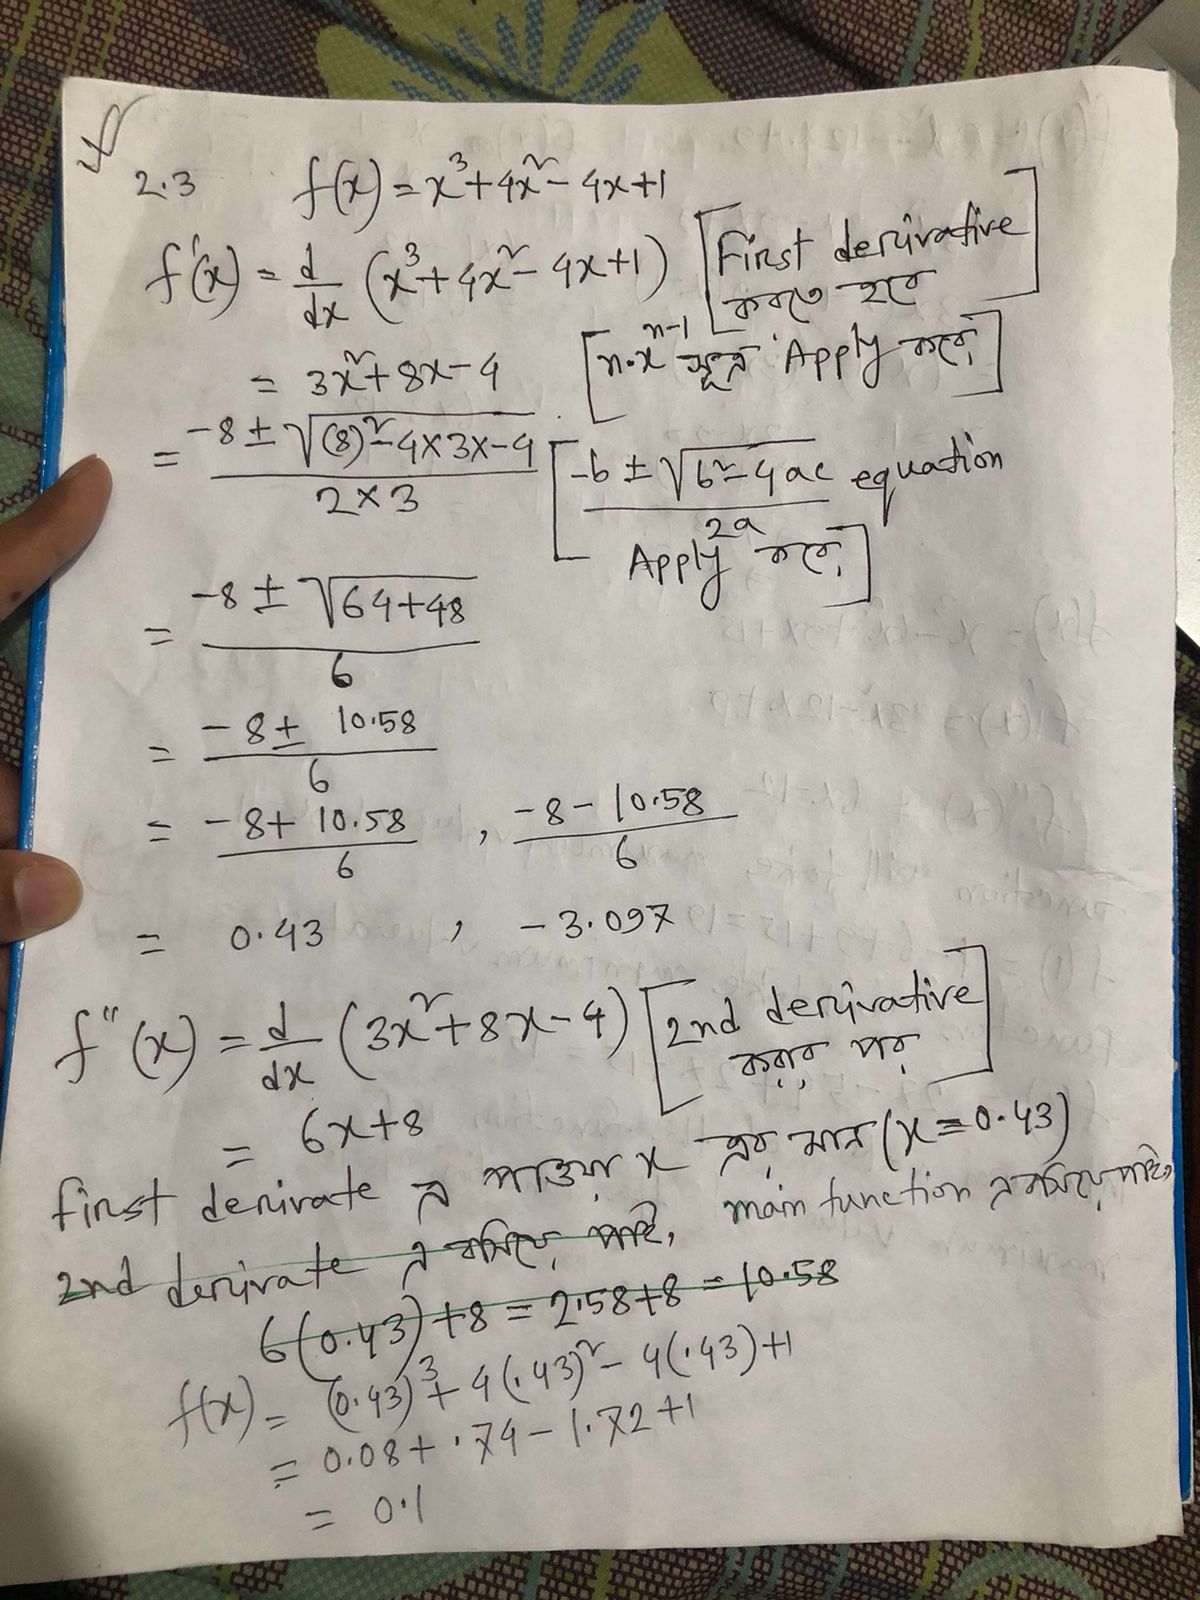 2.3 f(x) = x³ + 4x² - 4x + 1
f'(x) = d/dx (x³ + 4x² - 4x + 1) [First derivative করতে হবে]
= 3x² + 8x - 4 [n·xⁿ⁻¹ সূত্র Apply করে]
= (-8 ± √((8)² - 4×3×-4)) / (2×3) [(-b ± √(b² - 4ac)) / 2a equation Apply করে]
= (-8 ± √(64+48)) / 6
= (-8 ± 10.58) / 6
= (-8 + 10.58) / 6 , (-8 - 10.58) / 6
= 0.43 , -3.097
f''(x) = d/dx (3x² + 8x - 4) [2nd derivative করার পর]
= 6x + 8
first derivate এ পাওয়া x এর মান (x = 0.43)
2nd derivate এ বসিয়ে পাই, main function এ বসিয়ে পাই,
6(0.43) + 8 = 2.58 + 8 = 10.58
f(x) = (0.43)³ + 4(.43)² - 4(.43) + 1
= 0.08 + .74 - 1.72 + 1
= 0.1